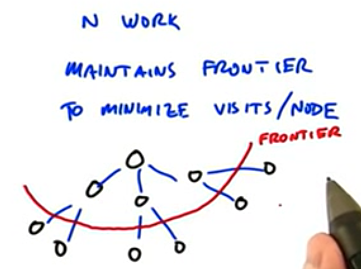 N WORK
MAINTAINS FRONTIER
TO MINIMIZE VISITS/NODE
FRONTIER